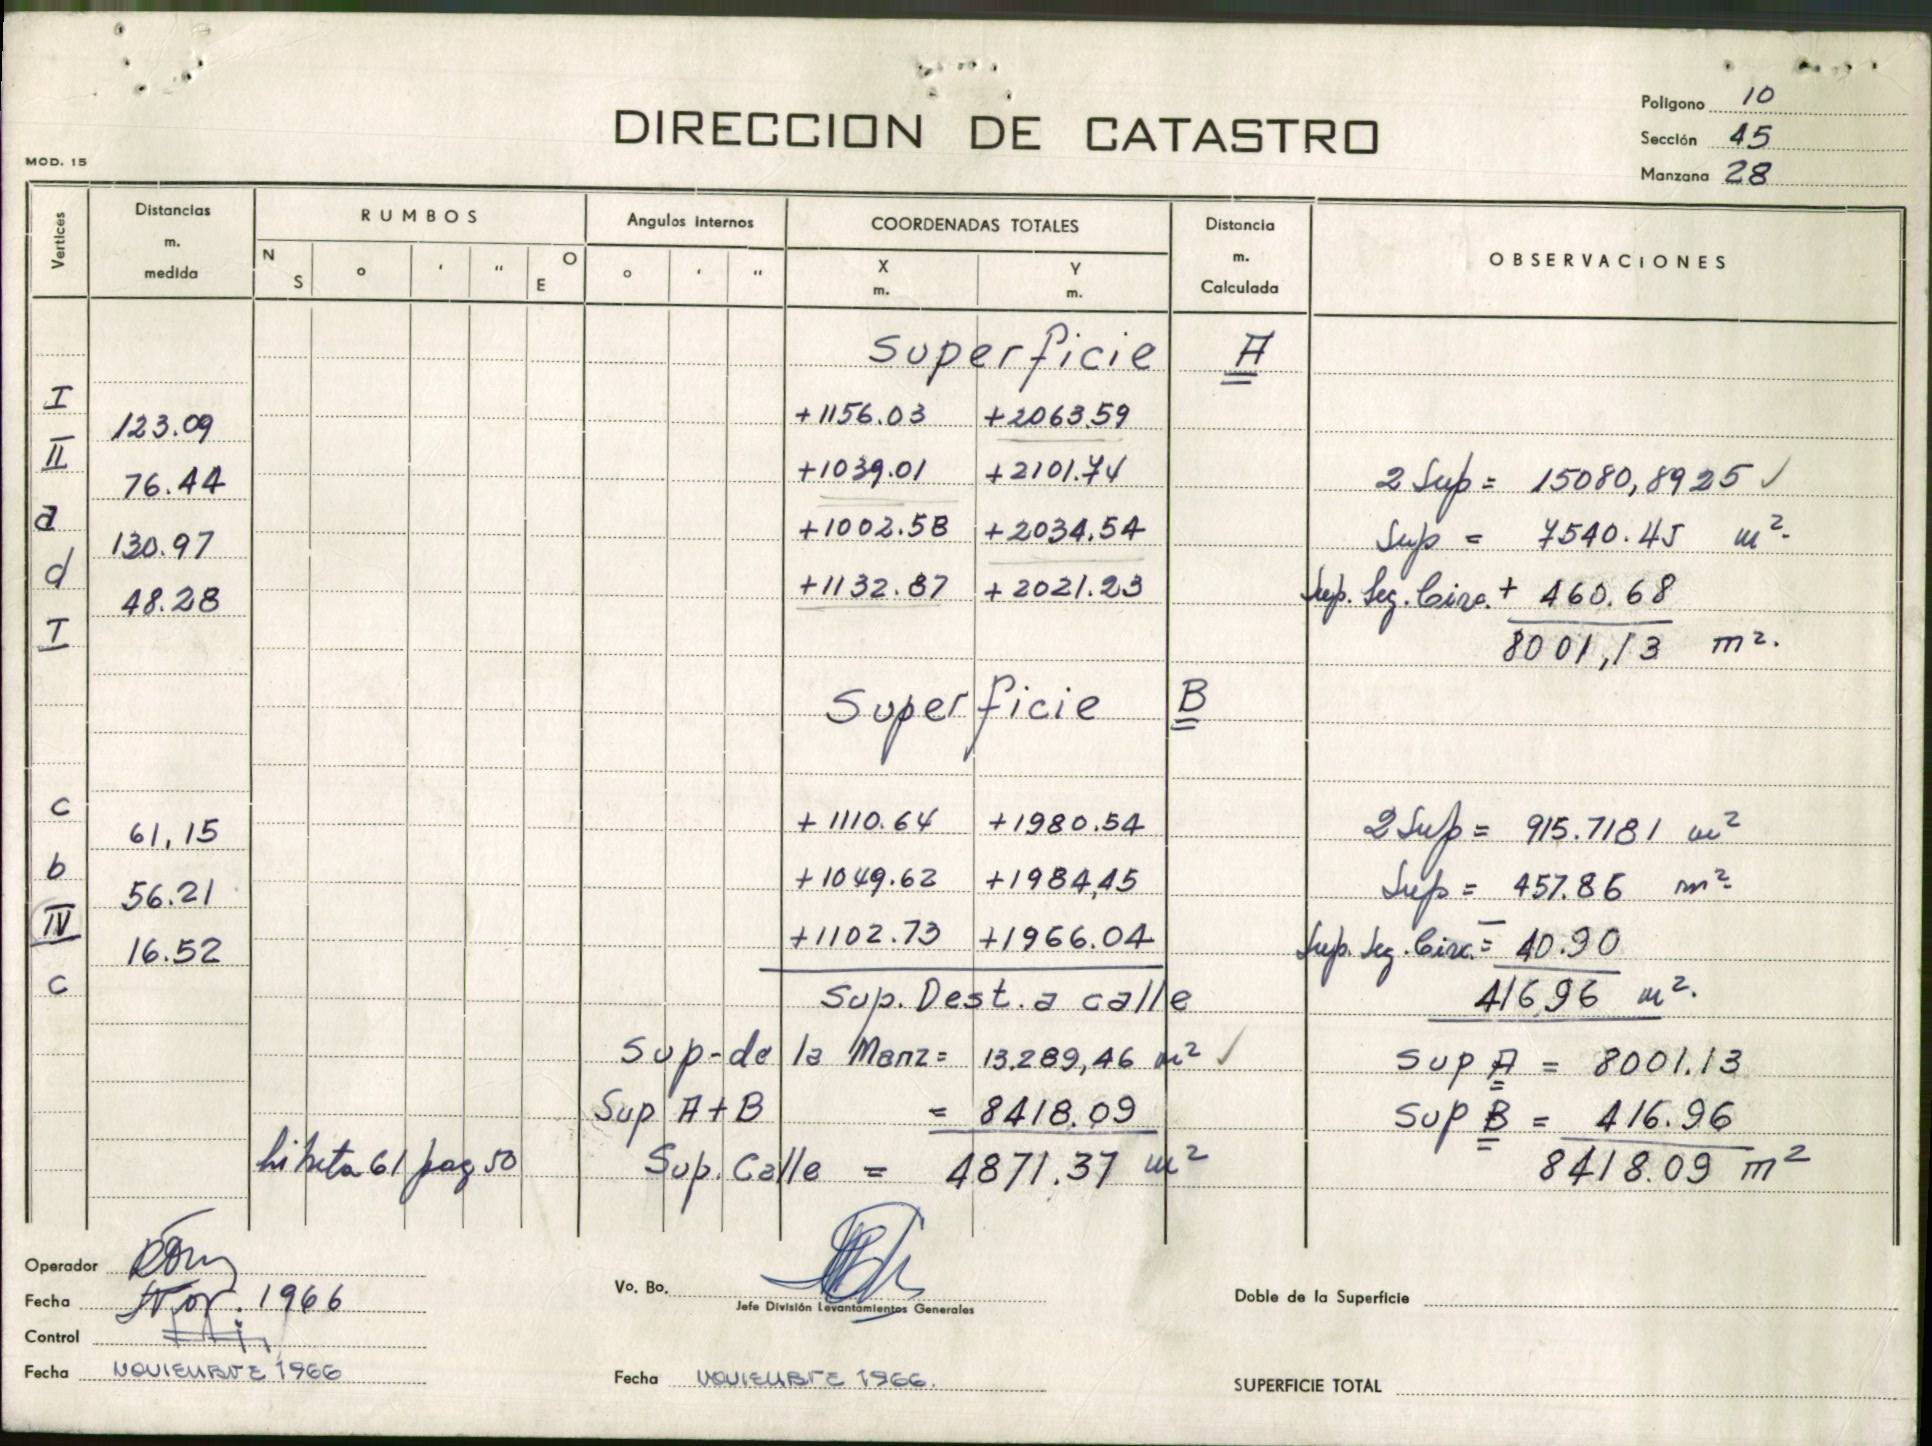 Poligono 10
DIRECCION DE CATASTRO
Sección 45
MOD. 15
Manzana 28
Vertices Distancias m. medida RUMBOS Angulos internos COORDENADAS TOTALES Distancia m. Calculada OBSERVACIONES
N S o ' " O E o ' " X m. Y m.
Superficie A
I +1156.03 +2063.59
123.09
II +1039.01 +2101.74 2 Sup = 15080,8925 ✓
76.44
a +1002.58 +2034.54 Sup = 7540.45 m2.
130.97
d +1132.87 +2021.23 Sup. Seg. Circ. + 460.68
48.28
I 8001,13 m2.
Superficie B
c +1110.64 +1980.54 2 Sup = 915.7181 m2
61,15
b +1049.62 +1984,45 Sup = 457.86 m2
56.21
IV +1102.73 +1966.04 Sup. Seg. Circ. = 40.90
16.52
c Sup. Dest. a calle 416,96 m2.
Sup-de la Manz = 13.289,46 m2 ✓ Sup A = 8001.13
Sup A+B = 8418.09 Sup B = 416.96
61 pag 50 Sup. Calle = 4871.37 m2 8418.09 m2
Operador
Vo. Bo.
Jefe División Levantamientos Generales
Doble de la Superficie
Fecha Nov. 1966
Control
Fecha NOVIEMBRE 1966
Fecha NOVIEMBRE 1966.
SUPERFICIE TOTAL